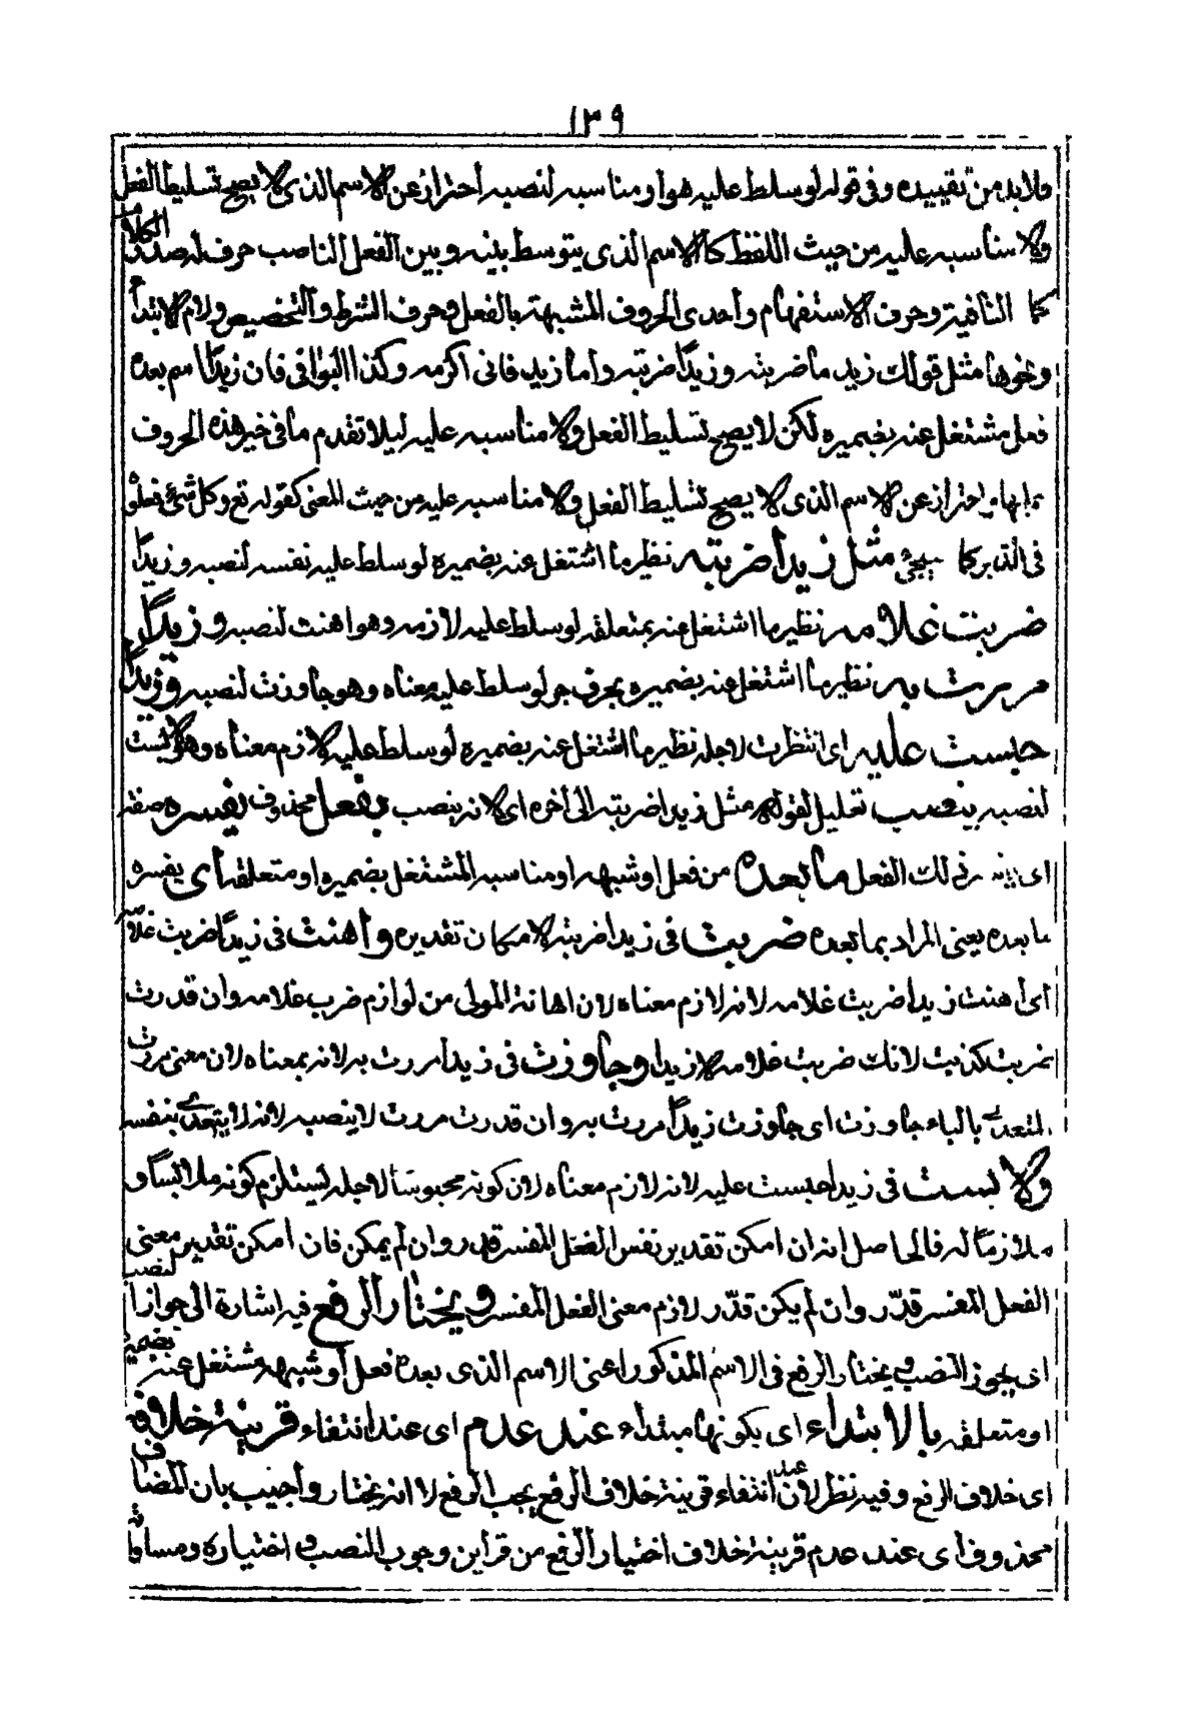 ١٣٩
فلابد من تقييده وفى قوله لو سلط عليه هو او مناسبه لنصبه احتراز عن الاسم الذى لا يصح تسليط الفعل
ولا مناسبه عليه من حيث اللفظ كالاسم الذى يتوسط بينه وبين الفعل الناصب حرف له صدر الكلام
كما النافية وحرف الاستفهام واحدى الحروف المشبهة بالفعل وحرف الشرط والتخصيص ولام الابتداء
ونحوها مثل قولك زيد ما ضربته وزيدًا ضربته واما زيد فانى اكرمه وكذا البواقى فان زيدًا اسم بعده
فعل مشتغل عنه بضميره لكن لا يصح تسليط الفعل ولا مناسبه عليه ليلا تقدم ما فى خبر هذه الحروف
احتراز عن الاسم الذى لا يصح تسليط الفعل ولا مناسبه عليه من حيث المعنى كقوله تع وكل شئ فعلوه
فى الزبر كما سيجئ مثل زيدا ضربته نظير ما اشتغل عنه بضميره لو سلط عليه نفسه لنصبه وزيدًا
ضربت غلامه نظير ما اشتغل عنه بمتعلقه لو سلط عليه لازمه وهو اهنت لنصبه وزيدًا
مررت به نظير ما اشتغل عنه بضميره بحرف جر لو سلط عليه معناه وهو جاوزت لنصبه وزيدًا
حبست عليه اى انتظرت لاجله نظير ما اشتغل عنه بضميره لو سلط عليه لازم معناه وهو لابست
لنصبه ينصب تعليل لقوله مثل زيدا ضربته الى آخره اى لانه ينصب بفعل محذوف يفسره صفته
اى ذلك الفعل ما بعده من فعل او شبهه او مناسبه المشتغل بضميره او متعلقه اى يفسره
ما بعده يعنى المراد بما بعده ضربت فى زيدا ضربته لامكان تقديره واهنت فى زيدًا ضربت غلامه
اى اهنت زيدا ضربت غلامه لانه لازم معناه لان اهانة المولى من لوازم ضرب غلامه وان قدرت
ضربت كذبت لانك ضربت غلامه لا زيدا وجاوزت فى زيدا مررت به لانه بمعناه لان معنى مررت
المتعدى بالباء جاوزت اى جاوزت زيدًا مررت به وان قدرت مررت لا ينصبه لانه لا يتعدى بنفسه
ولابست فى زيدا حبست عليه لانه لازم معناه لان كونه محبوسًا لاجله يستلزم كونه ملابسًا و
ملازمًا له فالحاصل انه ان امكن تقدير نفس الفعل المفسر قدر وان لم يمكن فان امكن تقدير معنى
الفعل المفسر قدّر وان لم يكن قدّر لازم معنى الفعل المفسر ويختار الرفع فيه اشارة الى جواز النصب
اى يجوز النصب ويختار الرفع فى الاسم المذكور اعنى الاسم الذى بعده فعل او شبهه مشتغل عنه بضميره
او متعلقه بالابتداء اى بكونها مبتداء عند عدم اى عند انتفاء قرينة خلافه
اى خلاف الرفع وفيه نظر لان عند انتفاء قرينة خلاف الرفع يجب الرفع لا انه يختار واجيب بان المضاف
محذوف اى عند عدم قرينة خلاف اختيار الرفع من قراين وجوب النصب او اختياره ومساواته